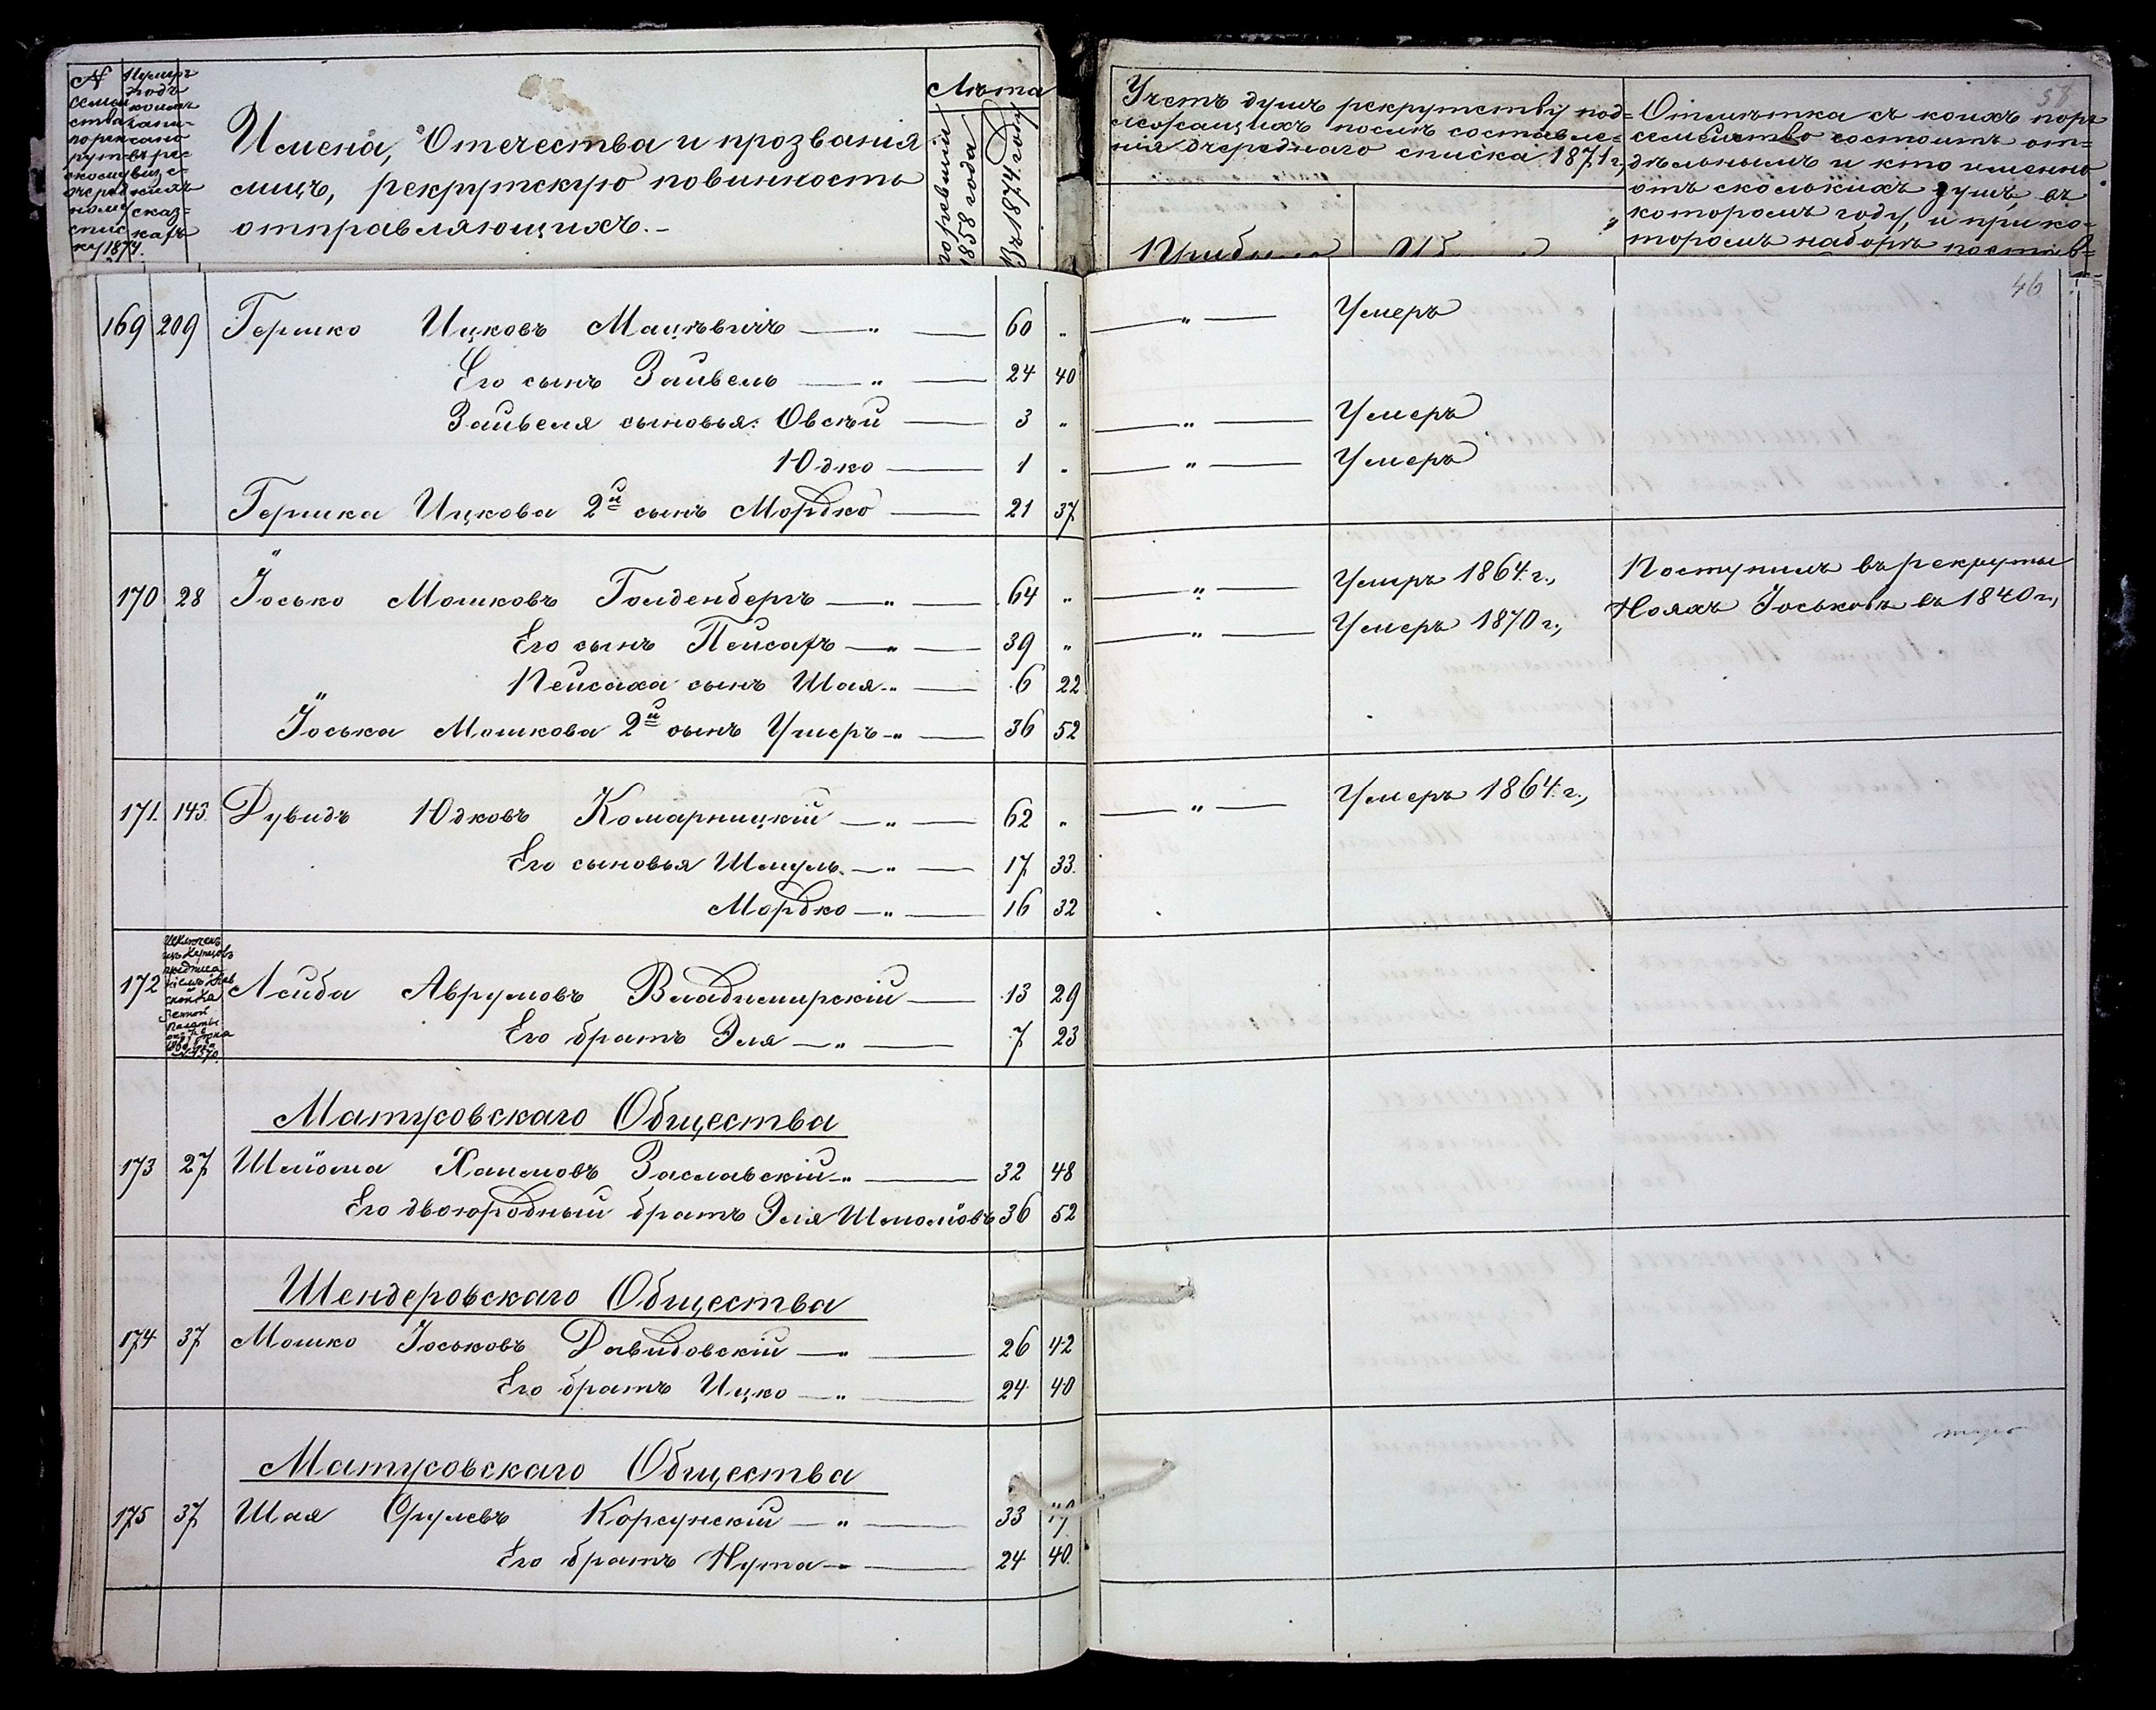 № семей
ства
по рек
рутс
скому
очеред
ному
спис
ку 1874.
Нумеръ
подъ
коимъ
запи-
сано
въ ре-
виз
скихъ
сказ-
кахъ
Имена, Отечества и прозванія
лицъ, рекрутскую повинность
отправляющихъ.-
Лѣта
по ревизіи
1858 года
Въ 1874 году
Учетъ душъ рекрутству под-
лежащихъ послѣ составле-
нія очереднаго списка 1871 г.,
Прибыло
58
Отмѣтка съ коихъ поръ
семейство состоитъ от-
дѣльнымъ и кто именно
отъ сколькихъ душъ въ
которомъ году, и при ко-
торомъ наборѣ постав-
46
169 209 Гершко Ицковъ Мацѣвичъ — „ — 60 „ — „ — Умеръ
Его сынъ Зайвель — „ — 24 40
Зайвеля сыновья: Овсѣй — 3 „ — „ — Умеръ
Юдко — 1 „ — „ — Умеръ
Гершка Ицкова 2й сынъ Мордко — 21 37
170 28 Іосько Мошковъ Голденбергъ — „ — 64 „ — „ — Умеръ 1864 г., Поступилъ въ рекруты
Его сынъ Пейсахъ — „ — 39 „ — „ — Умеръ 1870 г., Нояхъ Іоськовъ въ 1840 г.,
Пейсаха сынъ Шая „ — 6 22
Іоська Мошкова 2й сынъ Умеръ „ — 36 52
171. 143. Дувидъ Юдковъ Комарницкій — „ — 62 „ — „ — Умеръ 1864 г.,
Его сыновья Шмуль. — „ — 17 33.
Мордко — „ — 16 32
172 Лейба Аврумовъ Владимирскій — 13 29
Его братъ Эля — „ — 7 23
Матусовскаго Общества
173 27 Шлёма Хаимовъ Заславскій „ — 32 48
Его двоюродный братъ Эля Шмолёвъ 36 52
Шендеровскаго Общества
174 37 Мошко Іоськовъ Давидовскій — „ — 26 42
Его братъ Ицко — „ — 24 40
Матусовскаго Общества
175 37 Шая Срулевъ Корсунскій — „ — 33
Его братъ Нута — 24 40.